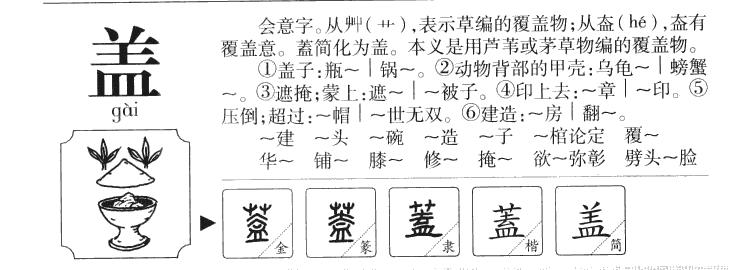 盖
gài
会意字。从艸(艹),表示草编的覆盖物;从盍(hé),盍有
覆盖意。蓋简化为盖。本义是用芦苇或茅草物编的覆盖物。
①盖子:瓶~｜锅~。②动物背部的甲壳:乌龟~｜螃蟹
~。③遮掩;蒙上:遮~｜~被子。④印上去:~章｜~印。⑤
压倒;超过:~帽｜~世无双。⑥建造:~房｜翻~。
~建 ~头 ~碗 ~造 ~子 ~棺论定 覆~
华~ 铺~ 膝~ 修~ 掩~ 欲~弥彰 劈头~脸
蓋金 蓋篆 蓋隶 蓋楷 盖简